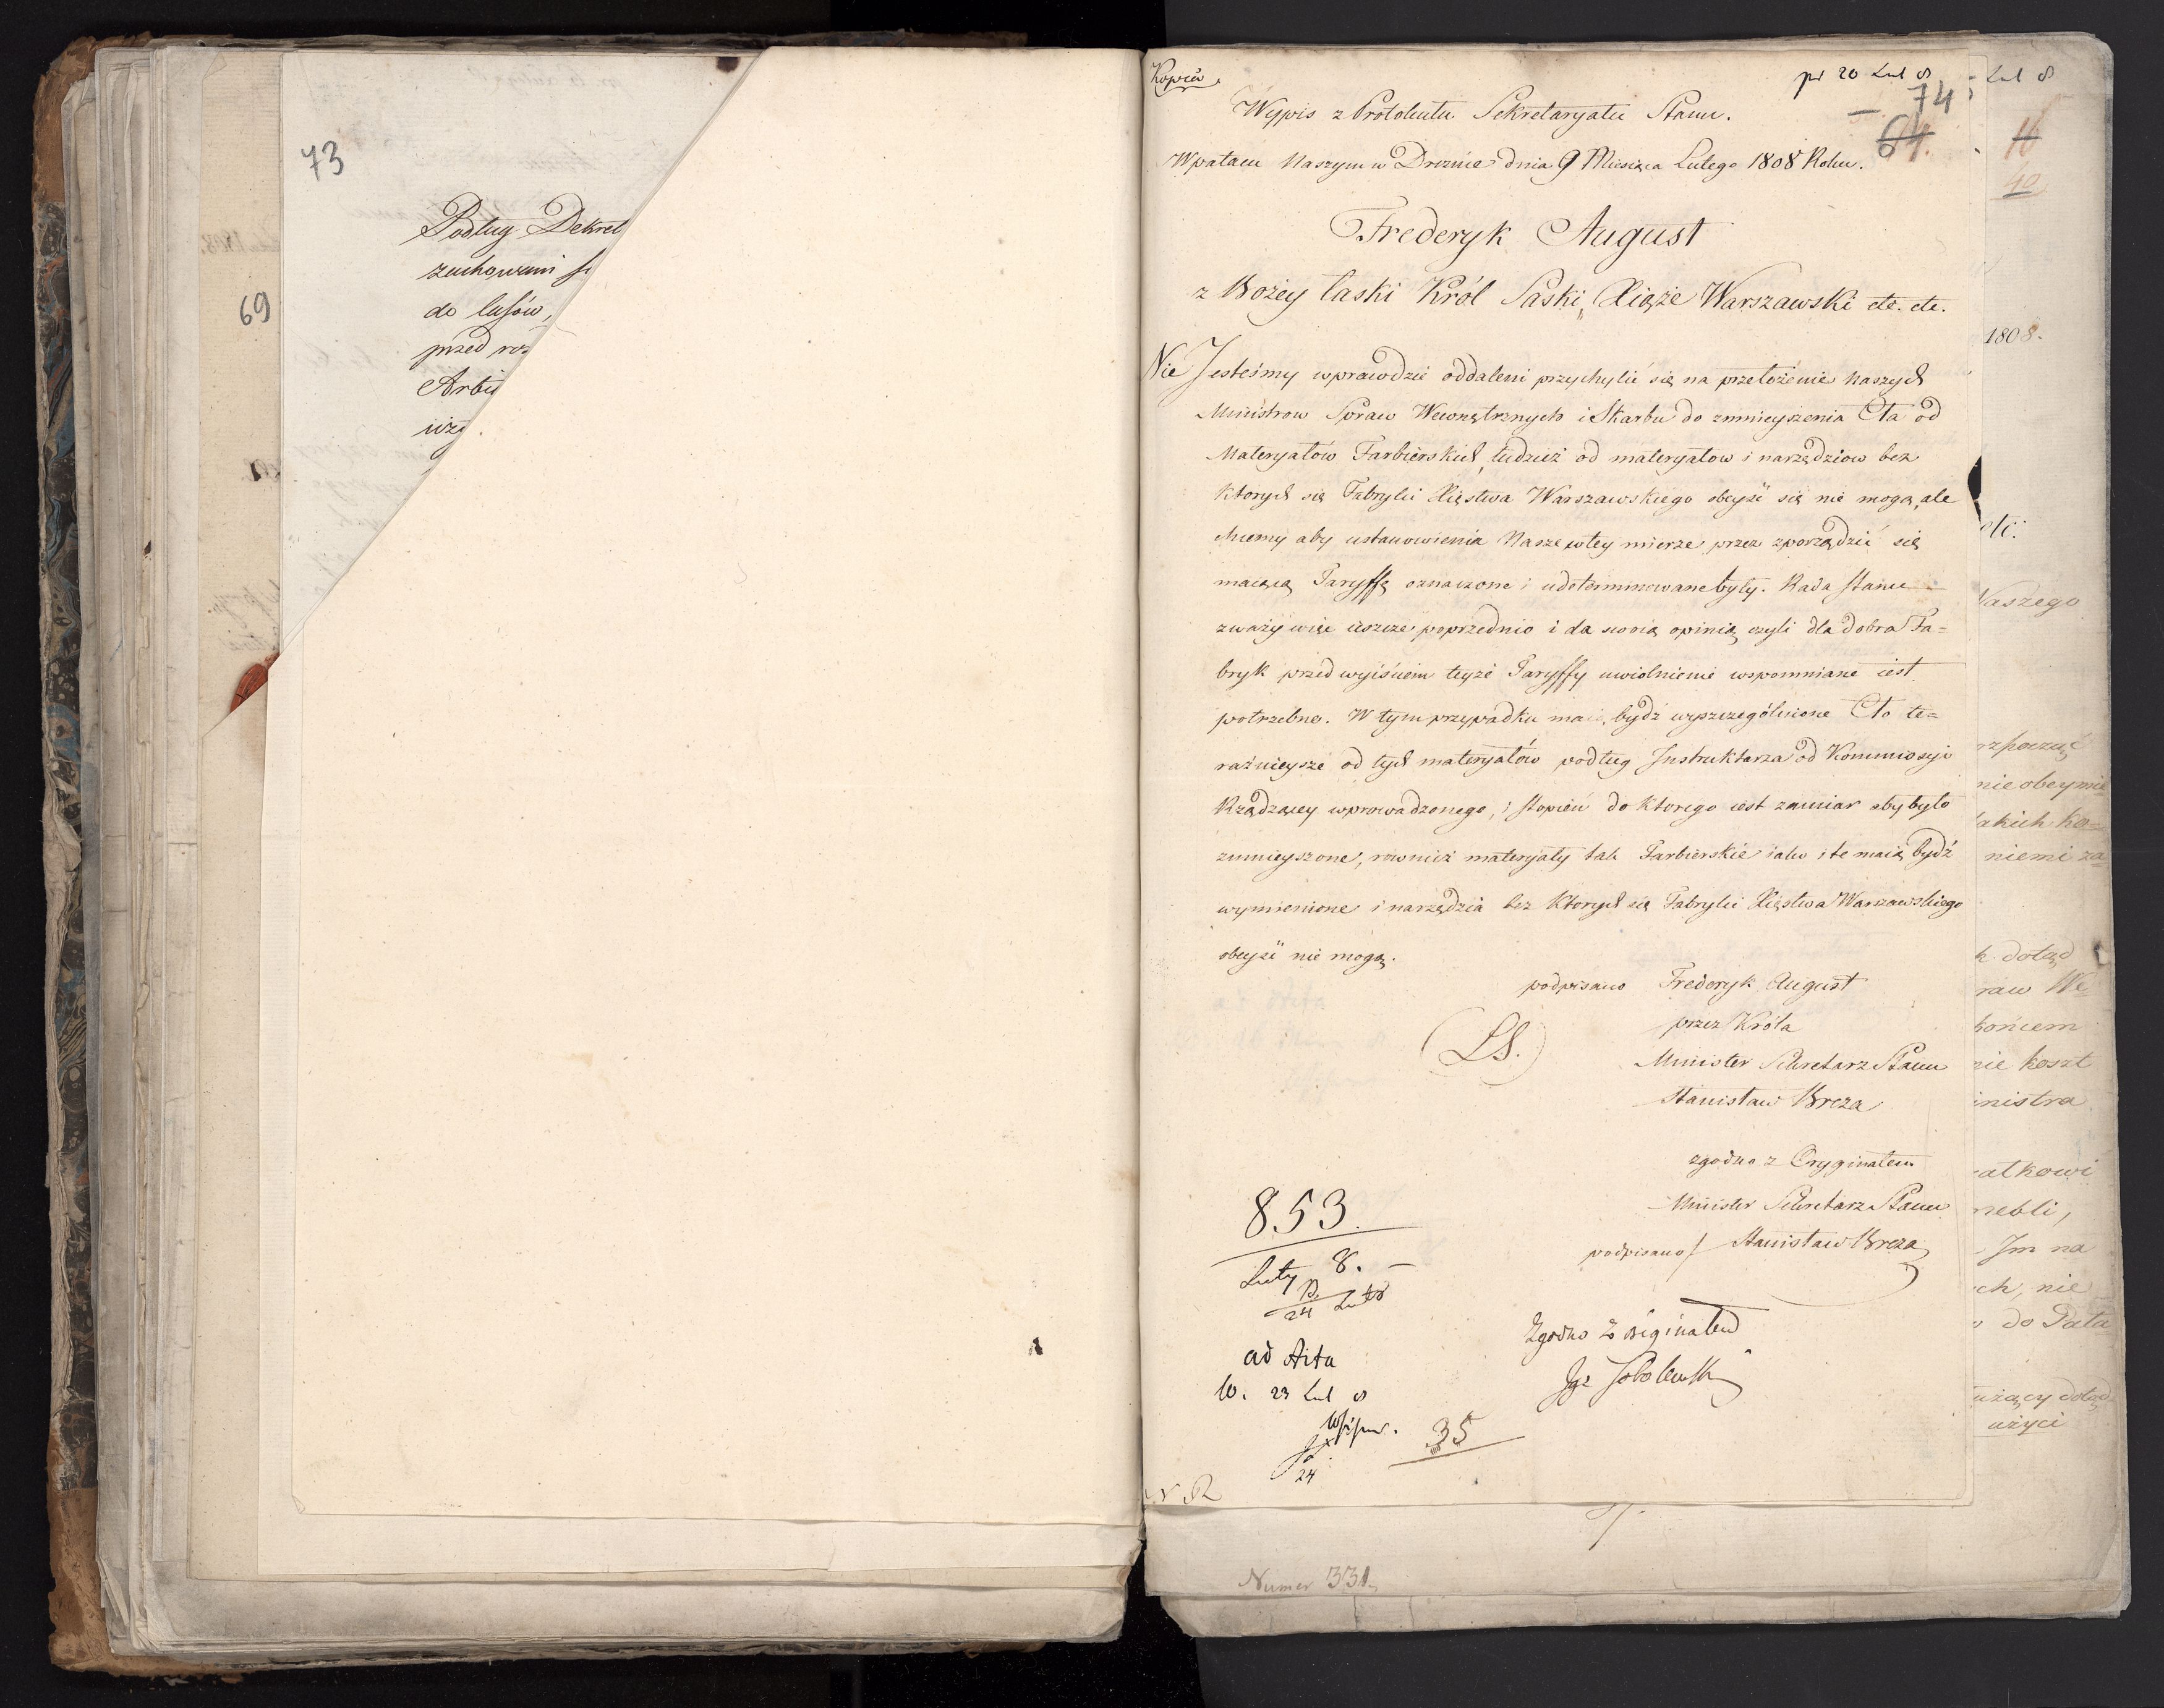 73
Podług Dekret
zachowani
do lasów,
przed roz
69
Kopia
pr 20 Lut 8
74
64.
Wypis z Protokułu Sekretaryatu Stanu.
W pałacu Naszym w Dreznie dnia 9 Miesiąca Lutego 1808 Roku.
Frederyk August
z Bożey łaski Król Saski, Xiąże Warszawski etc. etc.
Nie Jesteśmy wprawdzie oddaleni przychylić się na przełożenie Naszych
Ministrow Spraw Wewnętrznych i Skarbu do zmnieyszenia Cła od
Materyałów Farbierskich, tudzież od materyałow i narzędziow bez
Ktorych się Fabryki Xięstwa Warszawskiego obeyść się nie mogą, ale
chcemy aby ustanowienia Nasze w tey mierze przez zporządzić się
maiącą Taryffę oznaczone i udeterminowane były. Rada Stanu
zważy więc ieszcze poprzednio i da swoią opinią, czyli dla dobra Fa=
bryk przed wyiściem teyże Taryffy uwolnienie wspomniane iest
potrzebne. W tym przypadku maią bydź wyszczególnione Cło te=
raźnieysze od tych materyałów podług Instruktarza od Kommissyi
Rządzącey wprowadzonego, i stopień do ktorego iest zamiar aby było
zmnieyszone, rownież materyały tak Farbierskie iako i te maią bydź
wymienione i narzędzia bez Ktorych się Fabryki Xięstwa Warszawskiego
obeyść nie mogą.
podpisano Frederyk August
przez Króla
(LS.)
Minister Sekretarz Stanu
Stanisław Breza
zgodno z Oryginałem
Minister Sekretarz Stanu
podpisano/ Stanisław Breza
853.
Luty 8.
24 Lut 8
Zgodno z Originałem
Igz Sobolewski
ad Acta
w. 23 Lut 8
35
24
Numer 331.
Lut 8
16
40
1808.
etc:
Naszego
nie obeymie
takich ko=
niemi za=
h dotąd
raw We=
końcem
nie koszt
inistra
atkowi
mebli,
Im na
ch, nie
do Pała=
użący dotąd
użyci